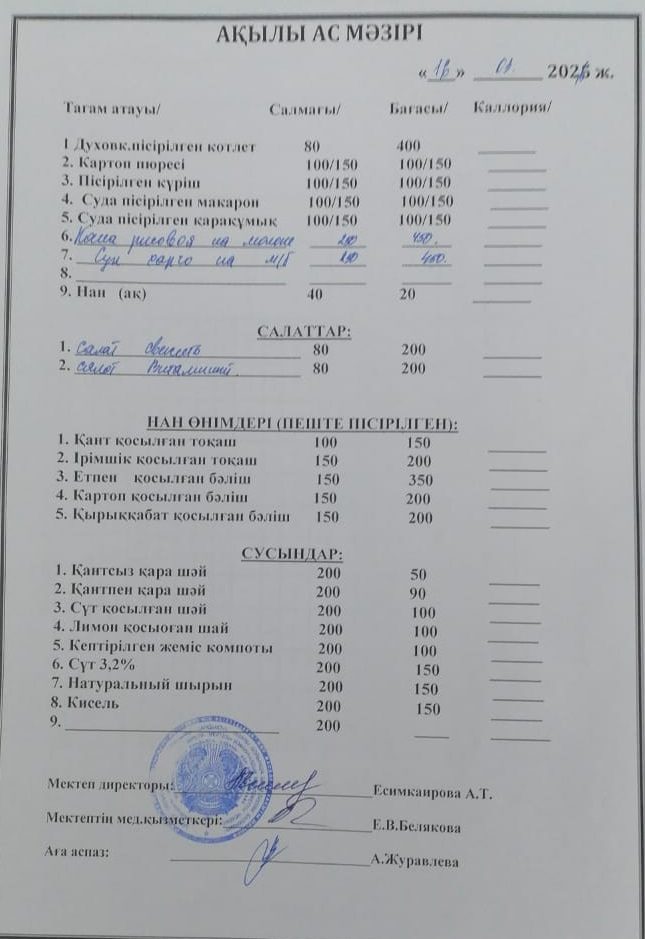 АҚЫЛЫ АС МӘЗІРІ
« 16 » 01. 2026 ж.
Тағам атауы/ Салмағы/ Бағасы/ Каллория/
1 Духовк.пісірілген котлет 80 400
2. Картоп пюресі 100/150 100/150
3. Пісірілген күріш 100/150 100/150
4. Суда пісірілген макарон 100/150 100/150
5. Суда пісірілген қарақұмық 100/150 100/150
6. Каша рисовоя на молоке 250 450.
7. Суп харчо на м/б 250 450.
8.
9. Нан (ақ) 40 20
САЛАТТАР:
1. Салат 80 200
2. салат Витаминий 80 200
НАН ӨНІМДЕРІ (ПЕШТЕ ПІСІРІЛГЕН):
1. Қант қосылған тоқаш 100 150
2. Ірімшік қосылған тоқаш 150 200
3. Етпен қосылған бәліш 150 350
4. Картоп қосылған бәліш 150 200
5. Қырыққабат қосылған бәліш 150 200
СУСЫНДАР:
1. Қантсыз қара шай 200 50
2. Қантпен қара шай 200 90
3. Сүт қосылған шай 200 100
4. Лимон қосыоған шай 200 100
5. Кептірілген жеміс компоты 200 100
6. Сүт 3,2% 200 150
7. Натуральный шырын 200 150
8. Кисель 200 150
9. 200
Мектеп директоры: Есимкаирова А.Т.
Мектептің мед.қызметкері: Е.В.Белякова
Аға аспаз: А.Журавлева